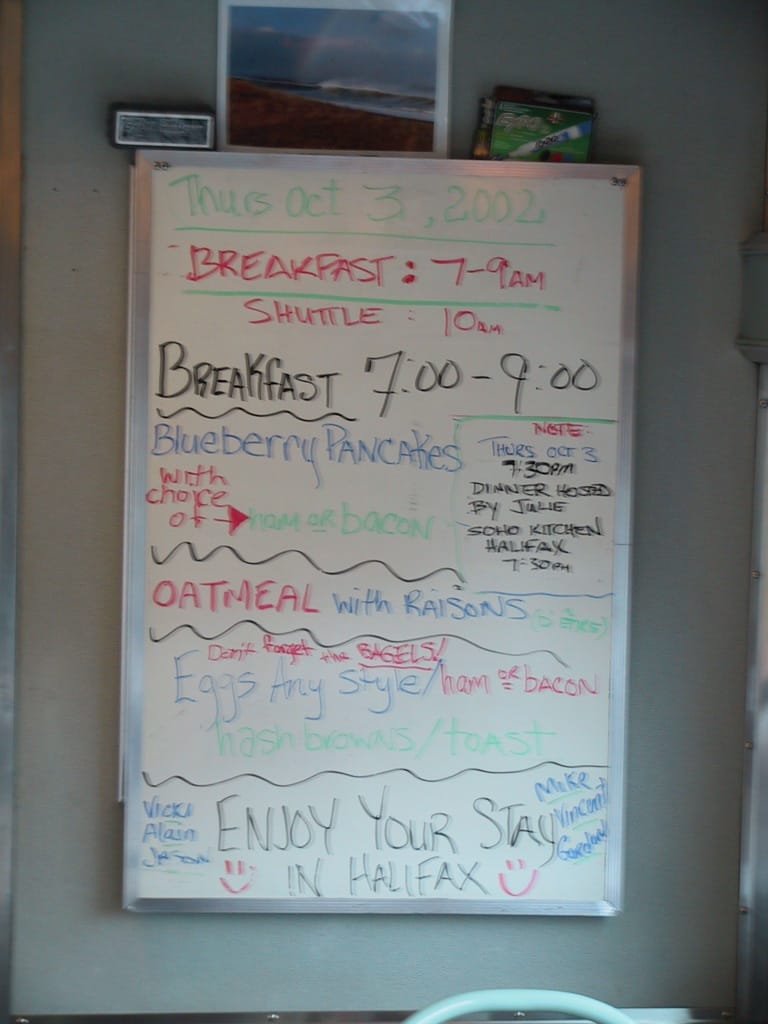 Thurs Oct 3, 2002
BREAKFAST: 7-9AM
SHUTTLE: 10AM
BREAKFAST 7:00 - 9:00
Blueberry PANCAKES
with
choice
of → ham or bacon
NOTE:
THURS OCT 3
7:30PM
DINNER HOSTED
BY JULIE
SOHO KITCHEN
HALIFAX
7:30PM
OATMEAL with RAISONS
Don't forget the BAGELS!
Eggs Any Style/ham OR BACON
hash browns/TOAST
Vicki
Alain
JASON
ENJOY YOUR STAY
IN HALIFAX
Mike
Vincent
Gordon